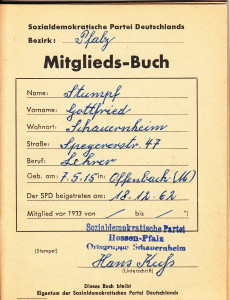 Sozialdemokratische Partei Deutschlands
Bezirk: Pfalz
Mitglieds-Buch
Name: Stumpf
Vorname: Gottfried
Wohnort: Schauernheim
Straße: Speyererstr. 47
Beruf: Lehrer
Geb. am 7.5.15 in: Offenbach (Id)
Der SPD beigetreten am: 18.12.62
Mitglied vor 1933 von / bis / *)
Sozialdemokratische Partei
Hessen-Pfalz
Ortsgruppe Schauernheim
(Stempel)
Hans
(Unterschrift)
Dieses Buch bleibt
Eigentum der Sozialdemokratischen Partei Deutschlands